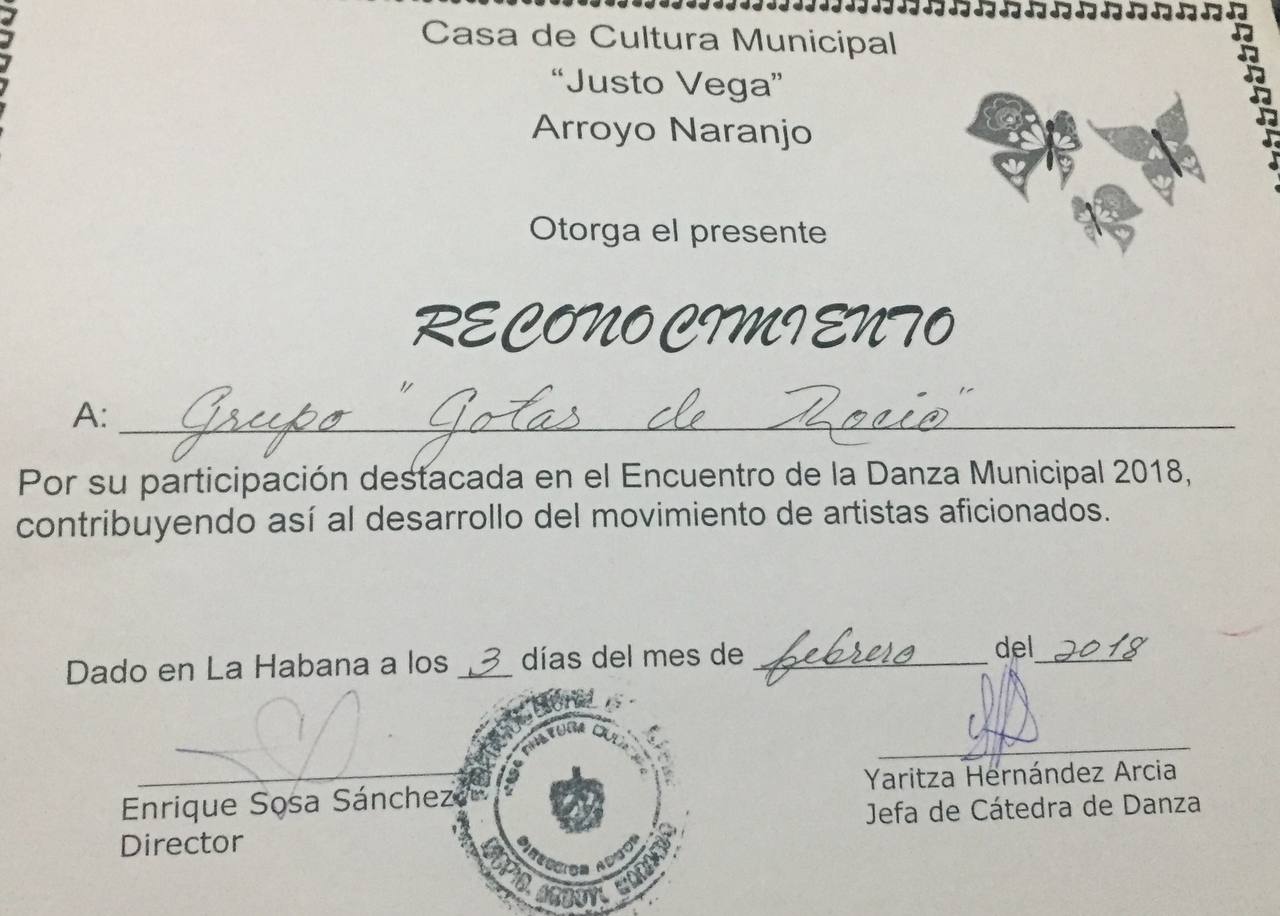 Casa de Cultura Municipal
“Justo Vega”
Arroyo Naranjo
Otorga el presente
RECONOCIMIENTO
A: Grupo "Gotas de Rocio"
Por su participación destacada en el Encuentro de la Danza Municipal 2018,
contribuyendo así al desarrollo del movimiento de artistas aficionados.
Dado en La Habana a los 3 días del mes de febrero del 2018
Enrique Sosa Sánchez
Director
Yaritza Hernández Arcia
Jefa de Cátedra de Danza
DIRECCION